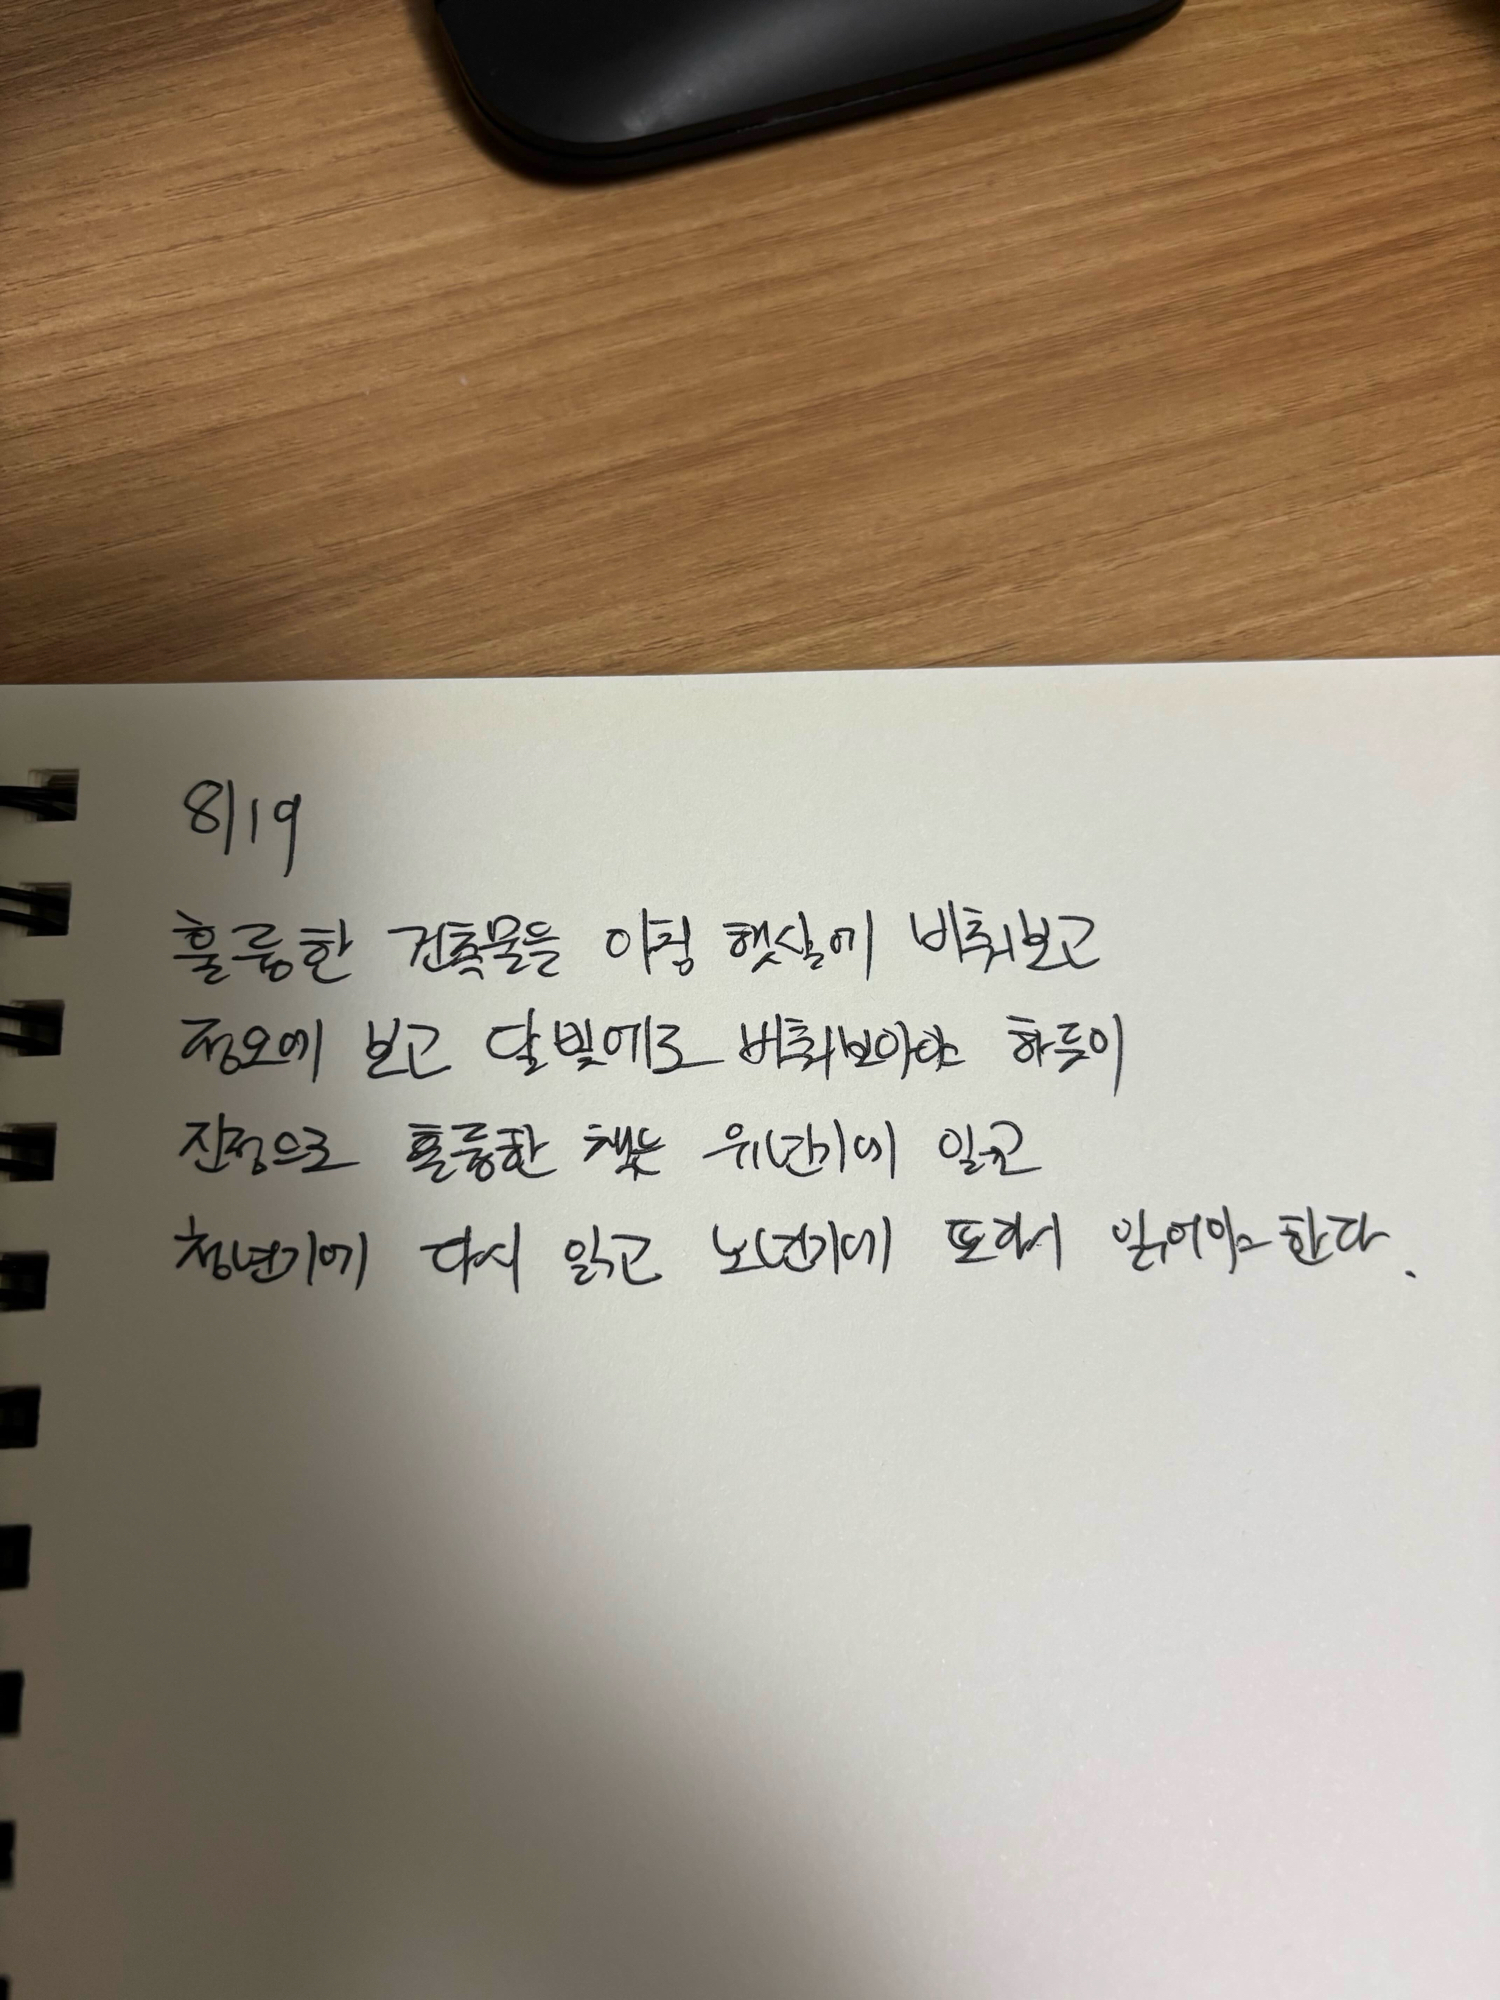 8/19
훌륭한 건축물을 아침 햇살에 비춰보고
정오에 보고 달빛에도 비춰보아야 하듯이
진정으로 훌륭한 책은 유년기에 읽고
청년기에 다시 읽고 노년기에 또다시 읽어야 한다.